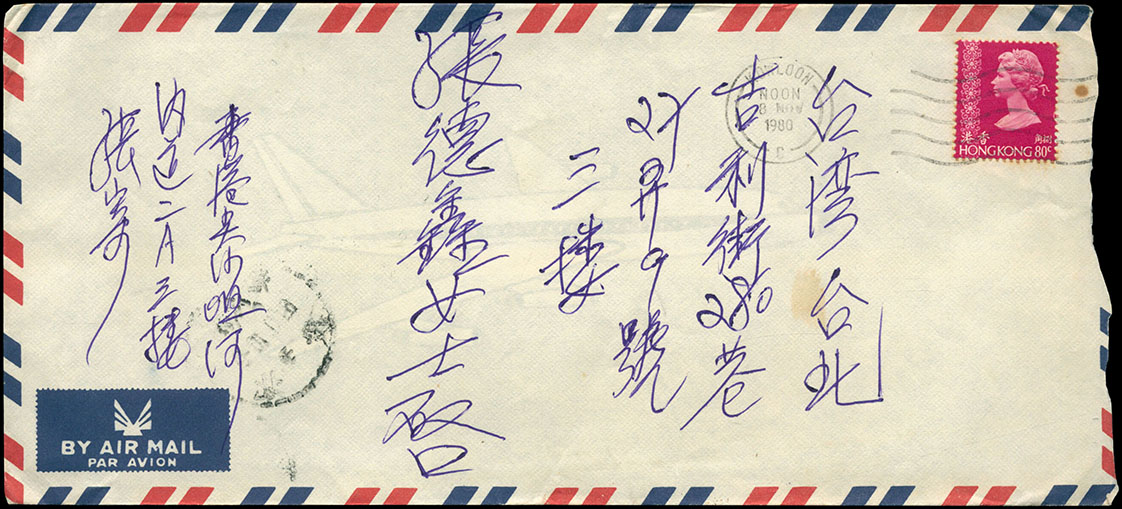 台湾台北
吉利街280巷
27弄9號
三楼
張德鑫女士啓
香港尖沙咀河
内道二A三楼
張
KOWLOON
NOON
8 NOV
1980
香港
HONG KONG 80c
BY AIR MAIL
PAR AVION